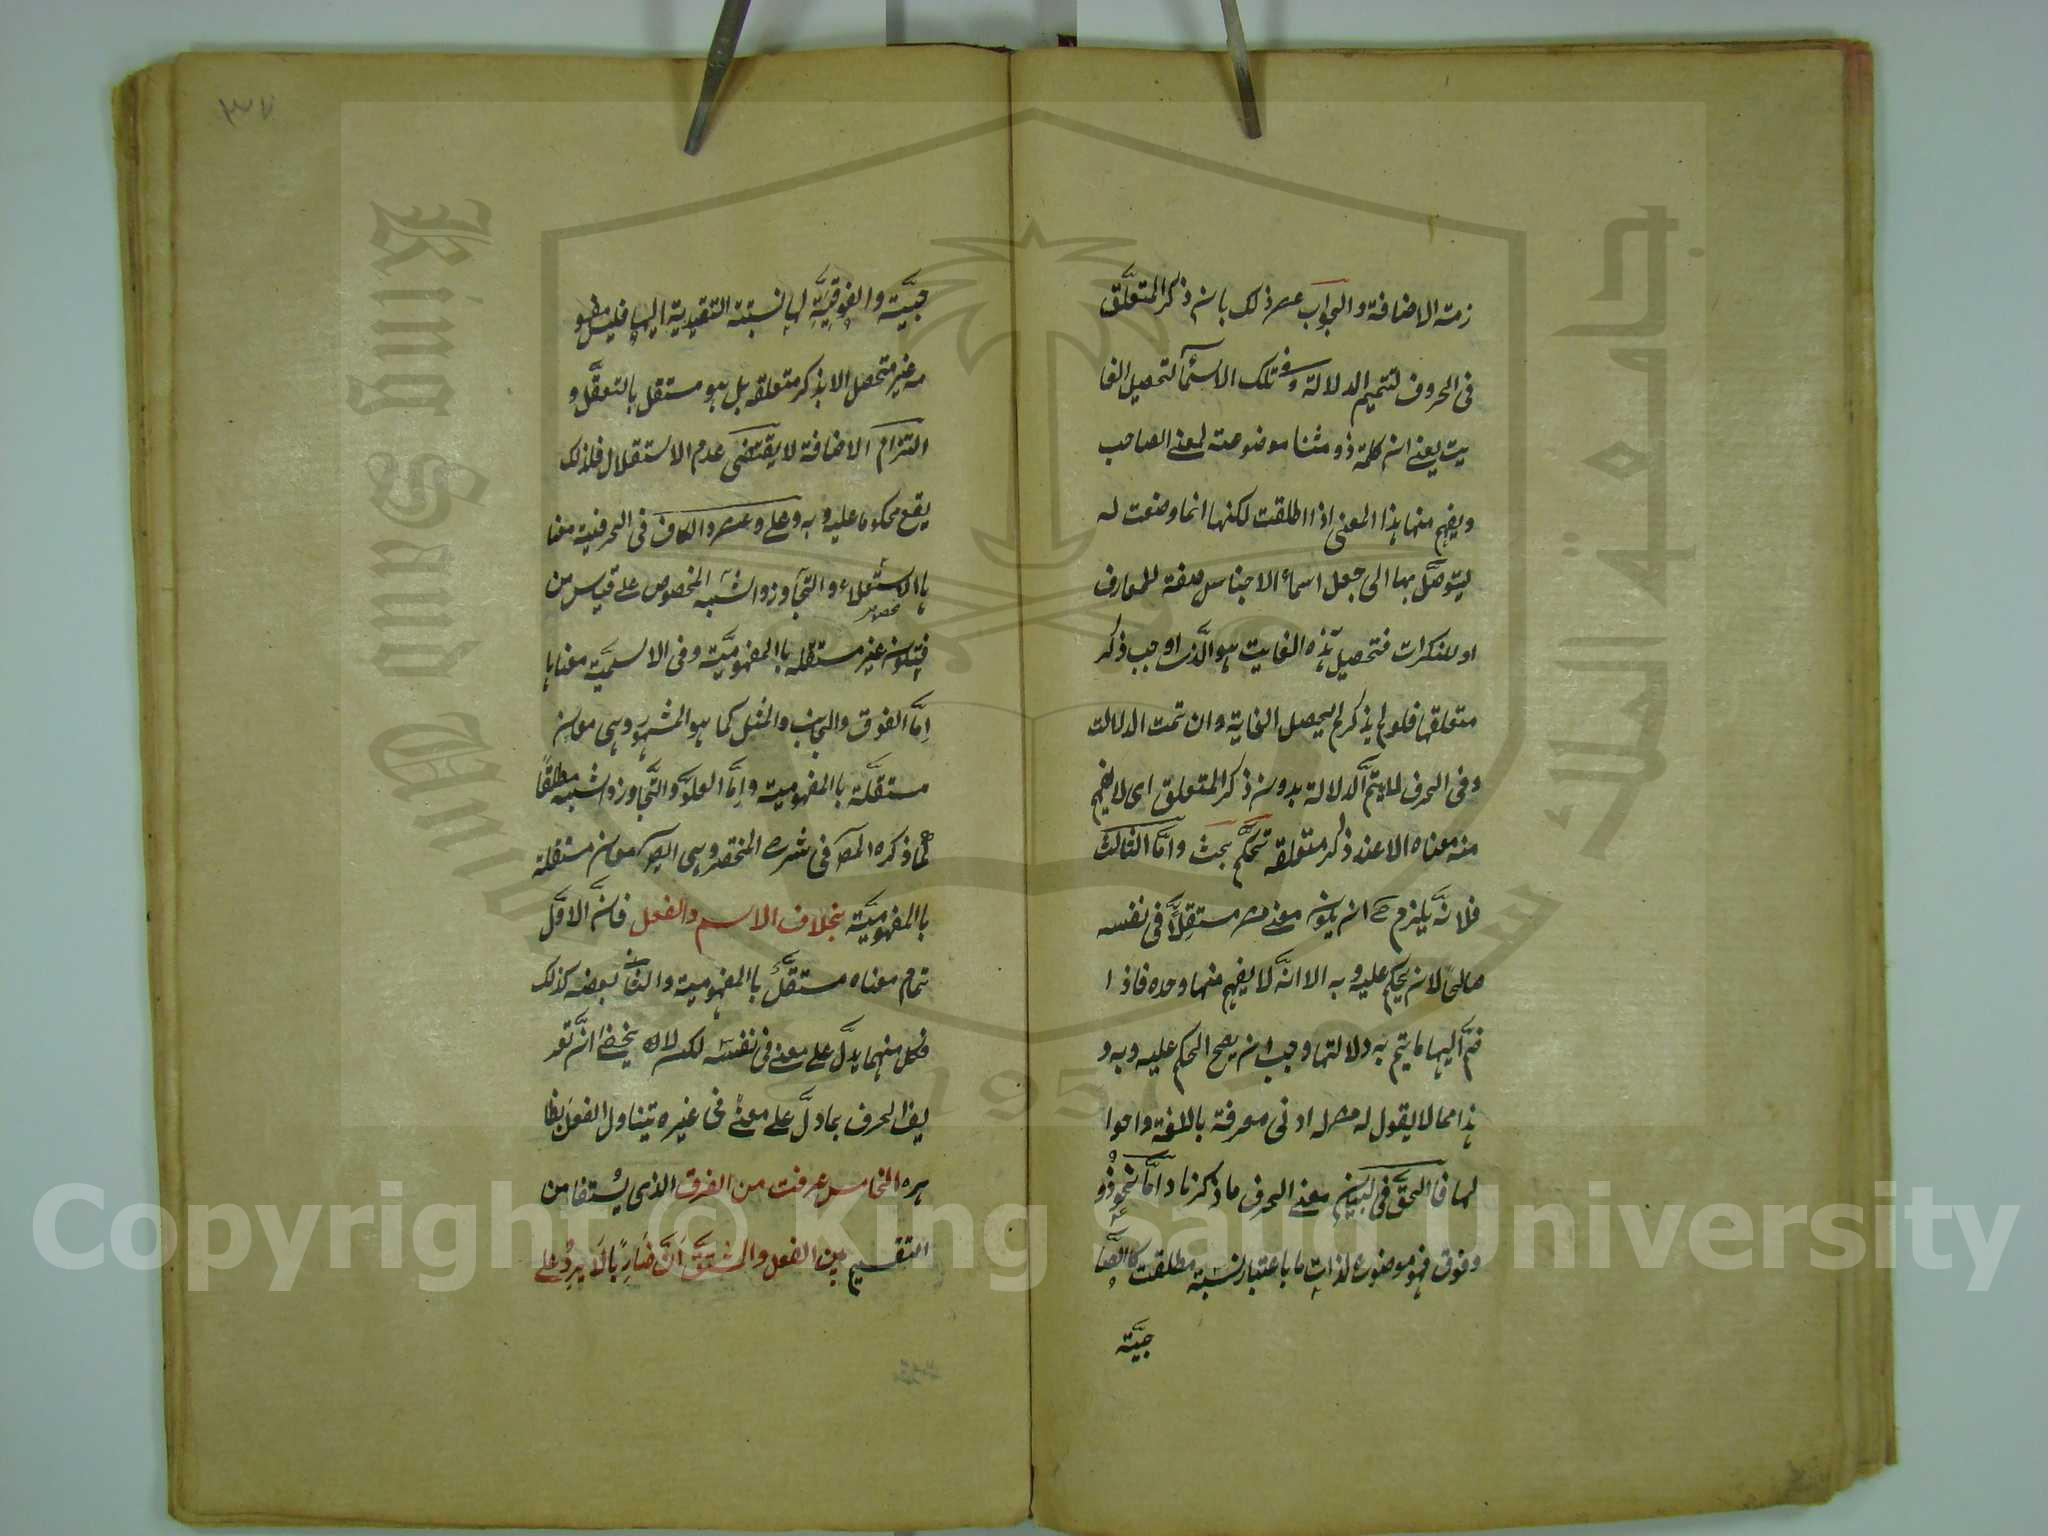 زمة الاضافة والجواب عن ذلك بان ذكر المتعلق
فى الحروف لتتميم الدلالة وفى تلك الاسماء لتحصيل الغا
يت يعنى ان كلمة ذو مثنا موضوعة لمعنى الصاحب
ويفهم منها هذا المعنى اذا اطلقت لكنها انما وضعت له
ليتوصّل بها الى جعل اسماء الاجناس صفة للمعارف
او للنكرات فتحصيل هذه الغايت هو الّذى اوجب ذكر
متعلقها فلو لم يذكر لم يحصل الغاية وان تمت الدلالت
وفى الحرف لما لم يتم الّدلالة بدون ذكر المتعلق اى لا يفهم
منه معناه الا عند ذكر متعلقه تحكّم بحت وامّا الثالث
فلانّه يلزم ح ان يكون معنى من مستقلاًّ فى نفسه
صالحًا لان يحكم عليه وبه الا انّه لا يفهم منها وحده فاذا
ضمّ اليها ما يتم به دلالتها وجب ان يصح الحكم عليه وبه و
هذا مما لا يقول له من له ادنى معرفة باللغة واحوا
لها فالحقّ فى لبيان معنى الحرف ما ذكرنا وامّا نحو ذو
وفوق فهو موضوع لذات ما باعتبار نسبة مطلقت كالصّا
حبيّة
حبيّة والفوقيّة لها نسبة التقيدية اليها فليس مفهو
مه غير متحصل الا بذكر متعلقه بل هو مستقل بالتعقّل و
التزام الاضافة لا يقتضى عدم الاستقلال فلذلك
يقع محكوما عليه وبه وعلى وعن والكاف فى الحرفية معنا
ها الاستعلاء والتجاوز والشبه المخصوص على قياس من
مخصوص
فيكون غير مستقله باالمفهوميّة وفى الاسميّة معناها
اِمّا الفوق والجانب والمثل كما هو المشهور وهى معان
مستقلّة باالمفهومية واِمّا العلوّ والتّجاوز والشبه مطلقًا
كما ذكره المص فى شرح المختصر وهى ايضا معان مستقلة
باالمفهوميّة بخلاف الاسم والفعل فانّ الاوّل
تمام معناه مستقلّ باالمفهومية والثانى بعضه كذلك
فكل منهما يدلّ على معنى فى نفسه لكن لا يخفى انّ تعر
يف الحرف بما دلّ على معنًى فى غيره يتناول الفعل بظا
هره الخامس عرفت من الفرق الذى يُستفا من
التقسيم بين الفعل والمشتقّ اَنّ ضَارِبًا لَا يرِدُ على